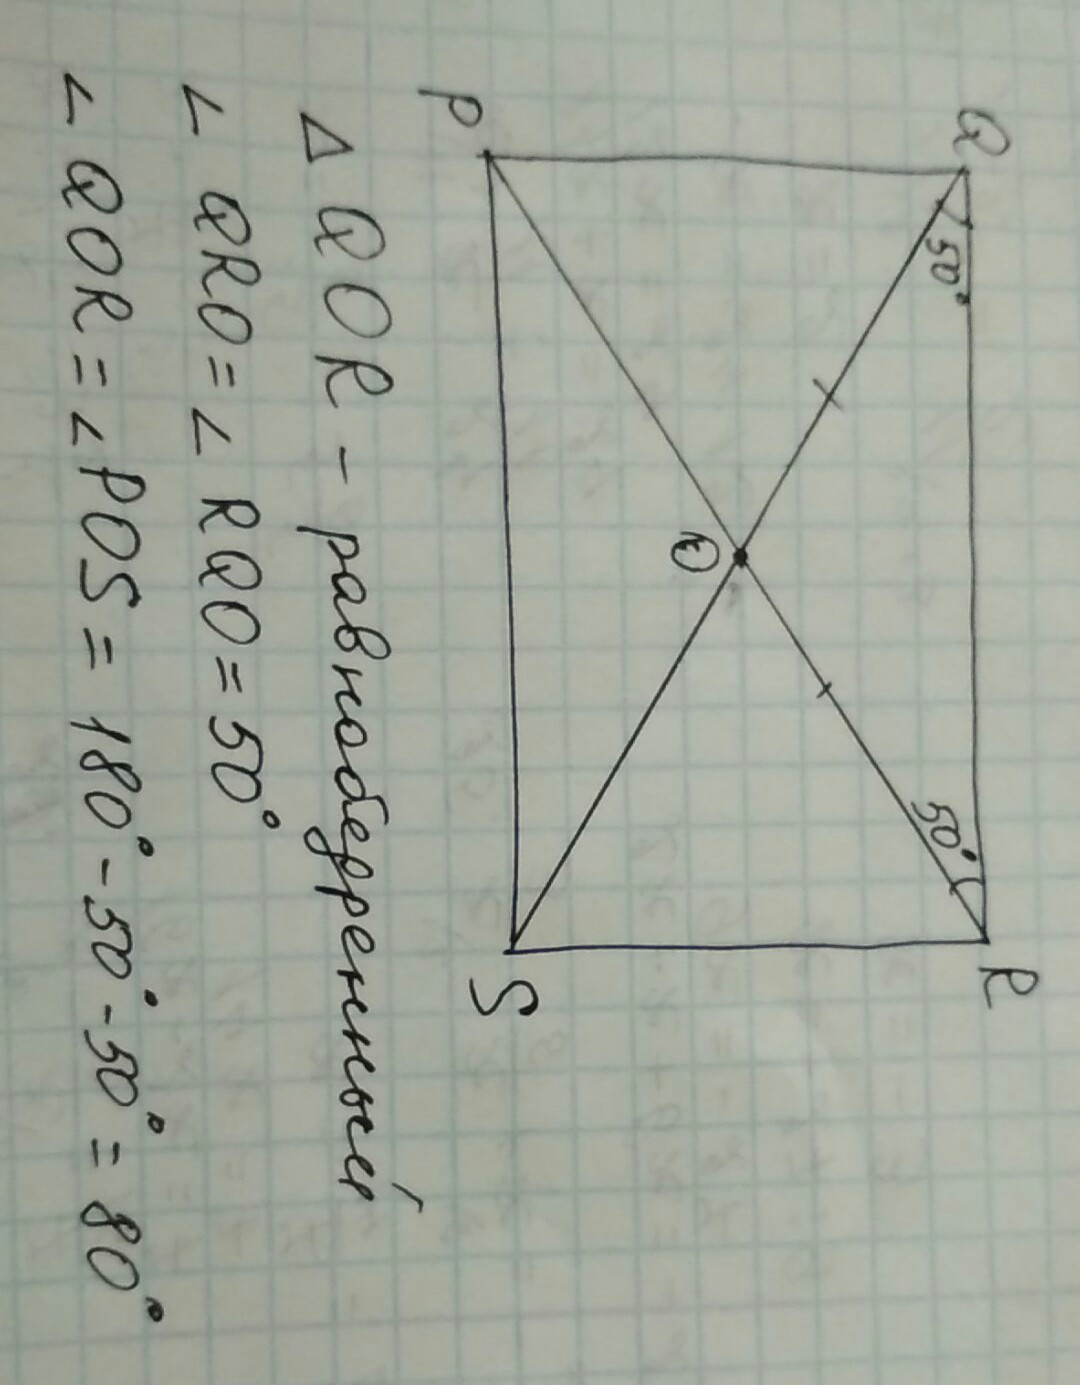 Q R
50° 50°
O
P S
Δ QOR - равнобедренный
∠ QRO = ∠ RQO = 50°
∠ QOR = ∠ POS = 180° - 50° - 50° = 80°